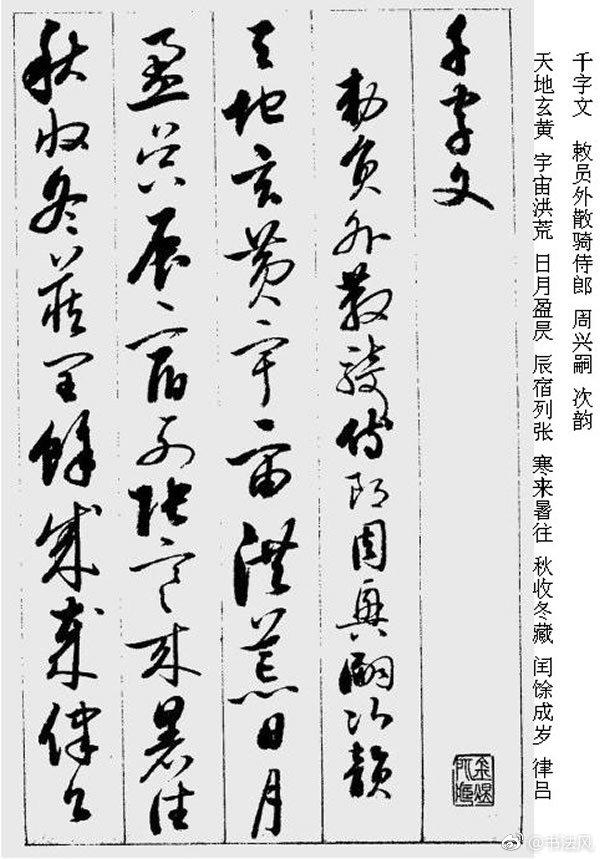 千字文 敕员外散骑侍郎 周兴嗣 次韵
天地玄黄 宇宙洪荒 日月盈昃 辰宿列张 寒来暑往 秋收冬藏 闰馀成岁 律吕
千字文
勅員外散騎侍郎周興嗣次韻
天地玄黄宇宙洪荒日月
盈昃辰宿列張寒来暑往
秋收冬藏閏餘成歲律吕
@书法风